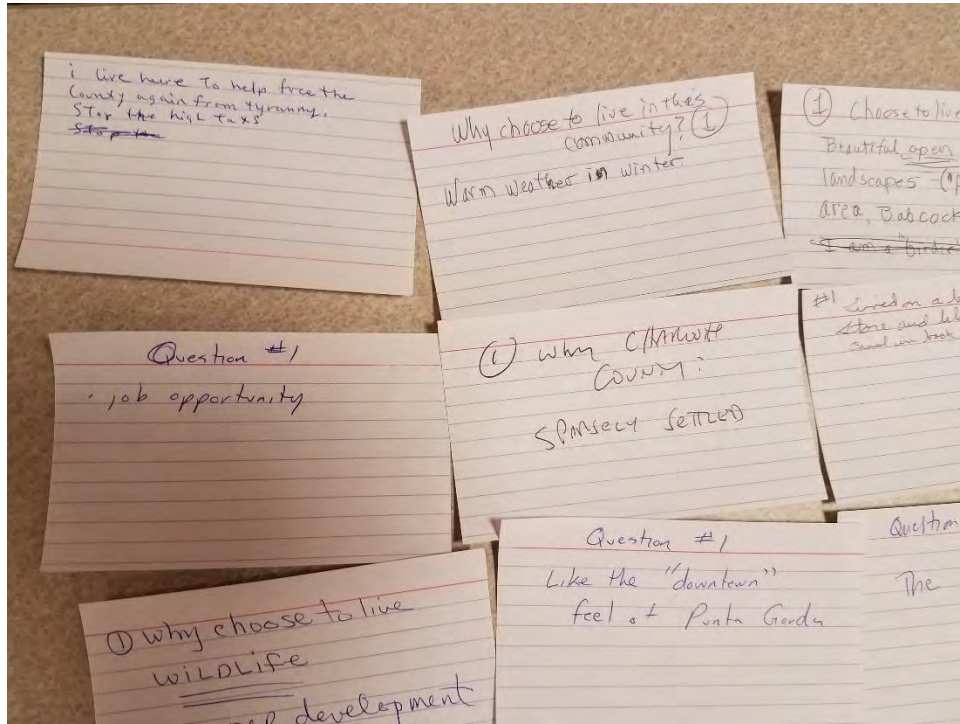 i live heure To help free the
County again from tyranny.
STop the high taxs
Stop the
Why choose to live in this
community? ①
Warm weather in winter
① Choose to live
Beautiful open
landscapes
area, Babcock
I am a "birder"
Question #1
· job opportunity
① Why CHARLOTTE
COUNTY?
SPARSELY SETTLED
#1 Lived on a
store and
canal in back
① Why choose to live
WILDLIFE
development
Question #1
Like the "downtown"
feel of Punta Gorda
Question
The